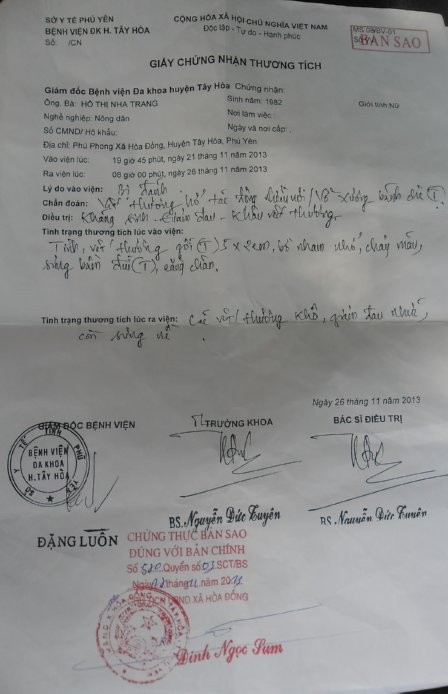 SỞ Y TẾ PHÚ YÊN
BỆNH VIỆN ĐK H. TÂY HÒA
Số: /CN
CỘNG HÒA XÃ HỘI CHỦ NGHĨA VIỆT NAM
Độc lập - Tự do - Hạnh phúc
MS:08/BV-01
BẢN SAO
GIẤY CHỨNG NHẬN THƯƠNG TÍCH
Giám đốc Bệnh viện Đa khoa huyện Tây Hòa Chứng nhận:
Ông, Bà: HỒ THỊ NHA TRANG Sinh năm: 1982 Giới tính: Nữ
Nghề nghiệp: Nông dân Nơi làm việc:
Số CMND/ Hộ khẩu: Ngày và nơi cấp:
Địa chỉ: Phú Phong Xã Hòa Đồng, Huyện Tây Hòa, Phú Yên
Vào viện lúc: 19 giờ 45 phút, ngày 21 tháng 11 năm 2013
Ra viện lúc: 08 giờ 00 phút, ngày 26 tháng 11 năm 2013
Lý do vào viện: Bị đánh
Chẩn đoán: Vết thương
Điều trị: Kháng sinh - Giảm đau - Khâu vết thương
Tình trạng thương tích lúc vào viện:
Tỉnh, vết thương gối (T) 5 x 2cm, bờ nham nhở, chảy máu,
sưng bầm đùi (T), cẳng chân.
Tình trạng thương tích lúc ra viện: Các vết thương khô, giảm đau nhức,
còn sưng nề.
Ngày 26 tháng 11 năm 2013
GIÁM ĐỐC BỆNH VIỆN TRƯỞNG KHOA BÁC SĨ ĐIỀU TRỊ
SỞ Y TẾ TỈNH PHÚ YÊN
BỆNH VIỆN
ĐA KHOA
H. TÂY HÒA
BS. Nguyễn Đức Tuyên BS. Nguyễn Đức Tuyên
ĐẶNG LUÔN
CHỨNG THỰC BẢN SAO
ĐÚNG VỚI BẢN CHÍNH
Số Quyển số 01 SCT/BS
Ngày tháng năm
UBND XÃ HÒA ĐỒNG
Đinh Ngọc Sum